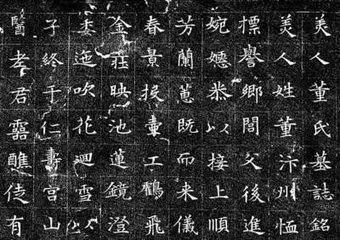 美人董氏墓誌銘
美人姓董汴州恤
標譽鄉閭父後進
婉嫕恭以接上順
芳蘭蕙既而來儀
春景投壺工鶴飛
金莊映池蓮鏡澄
委迤吹花迴雪以
子終于仁壽宮山
醫老君靈醮徒有